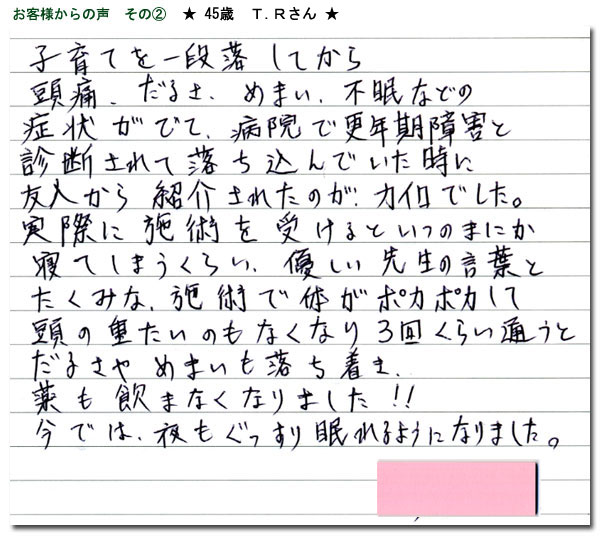 お客様からの声　その②　★ 45歳　T.Rさん ★
子育てを一段落してから
頭痛、だるさ、めまい、不眠などの
症状がでて、病院で更年期障害と
診断されて落ち込んでいた時に
友人から紹介されたのが、カイロでした。
実際に施術を受けるといつのまにか
寝てしまうくらい、優しい先生の言葉と
たくみな、施術で体がポカポカして
頭の重たいのもなくなり3回くらい通うと
だるさやめまいも落ち着き、
薬も飲まなくなりました!!
今では、夜もぐっすり眠れるようになりました。